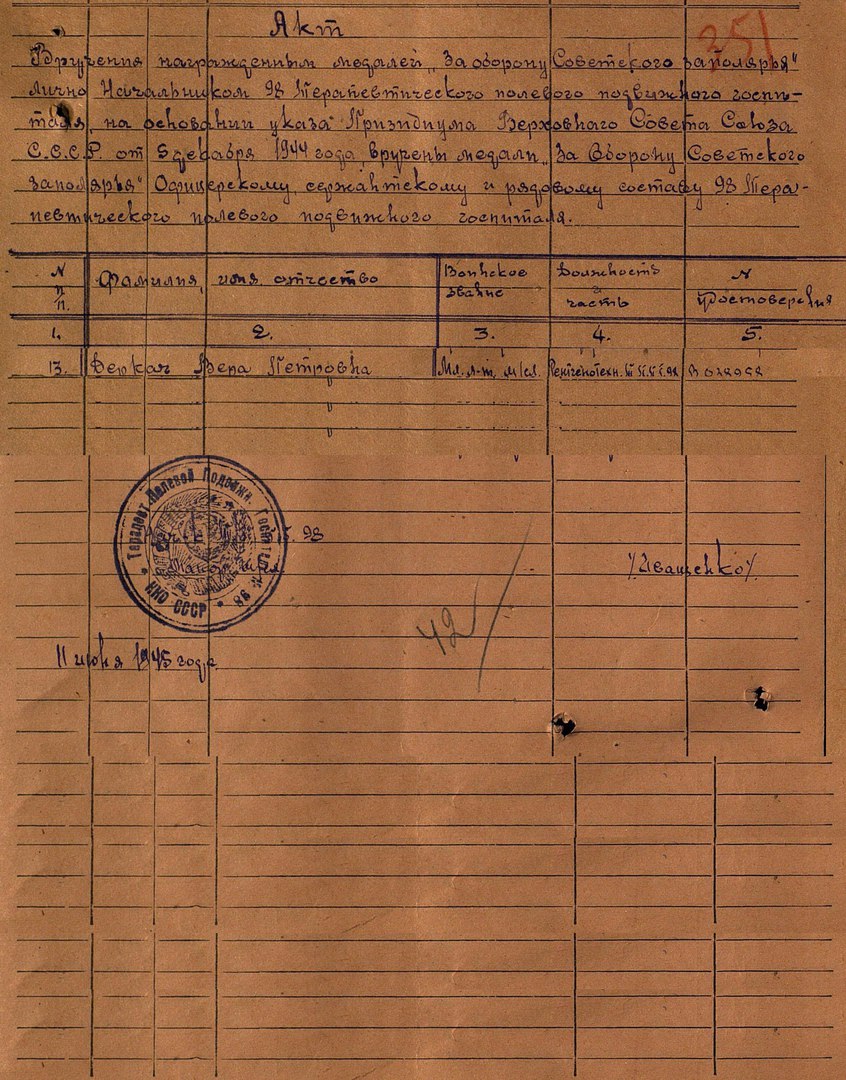 Акт
351
Вручения награжденным медалей „За оборону Советского заполярья"
лично Начальником 98 Терапевтического полевого подвижного госпи-
таля, на основании указа Призидиума Верховного Совета Союза
С.С.С.Р. от 5 декабря 1944 года вручены медали „За Оборону Советского
заполярья" Офицерскому, сержантскому и рядовому составу 98 Тера-
певтического полевого подвижного госпиталя.
N п/п. Фамилия, имя отчество Воинское звание Должность и часть N Удостоверения
1. 2. 3. 4. 5.
13. Деркач Вера Петровна Мл. л-т. м/сл. Рентгенотехн.
Терапевт. Полевой Подвижн. Госпиталь 98
НКО СССР
98
/Иващенко/
42
11 июня 1945 года